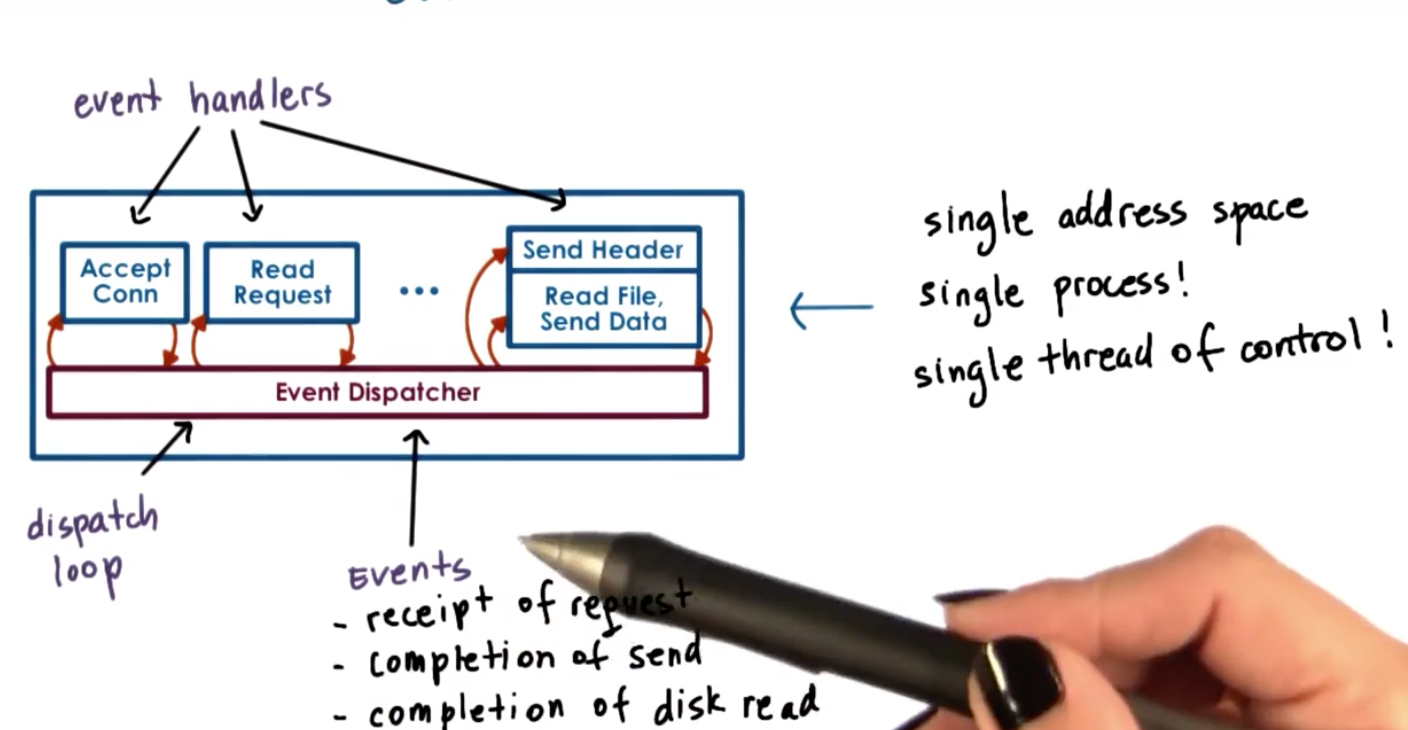 event handlers
Accept
Conn
Read
Request
...
Send Header
Read File,
Send Data
Event Dispatcher
single address space
single process!
single thread of control!
dispatch
loop
Events
- receipt of request
- completion of send
- completion of disk read